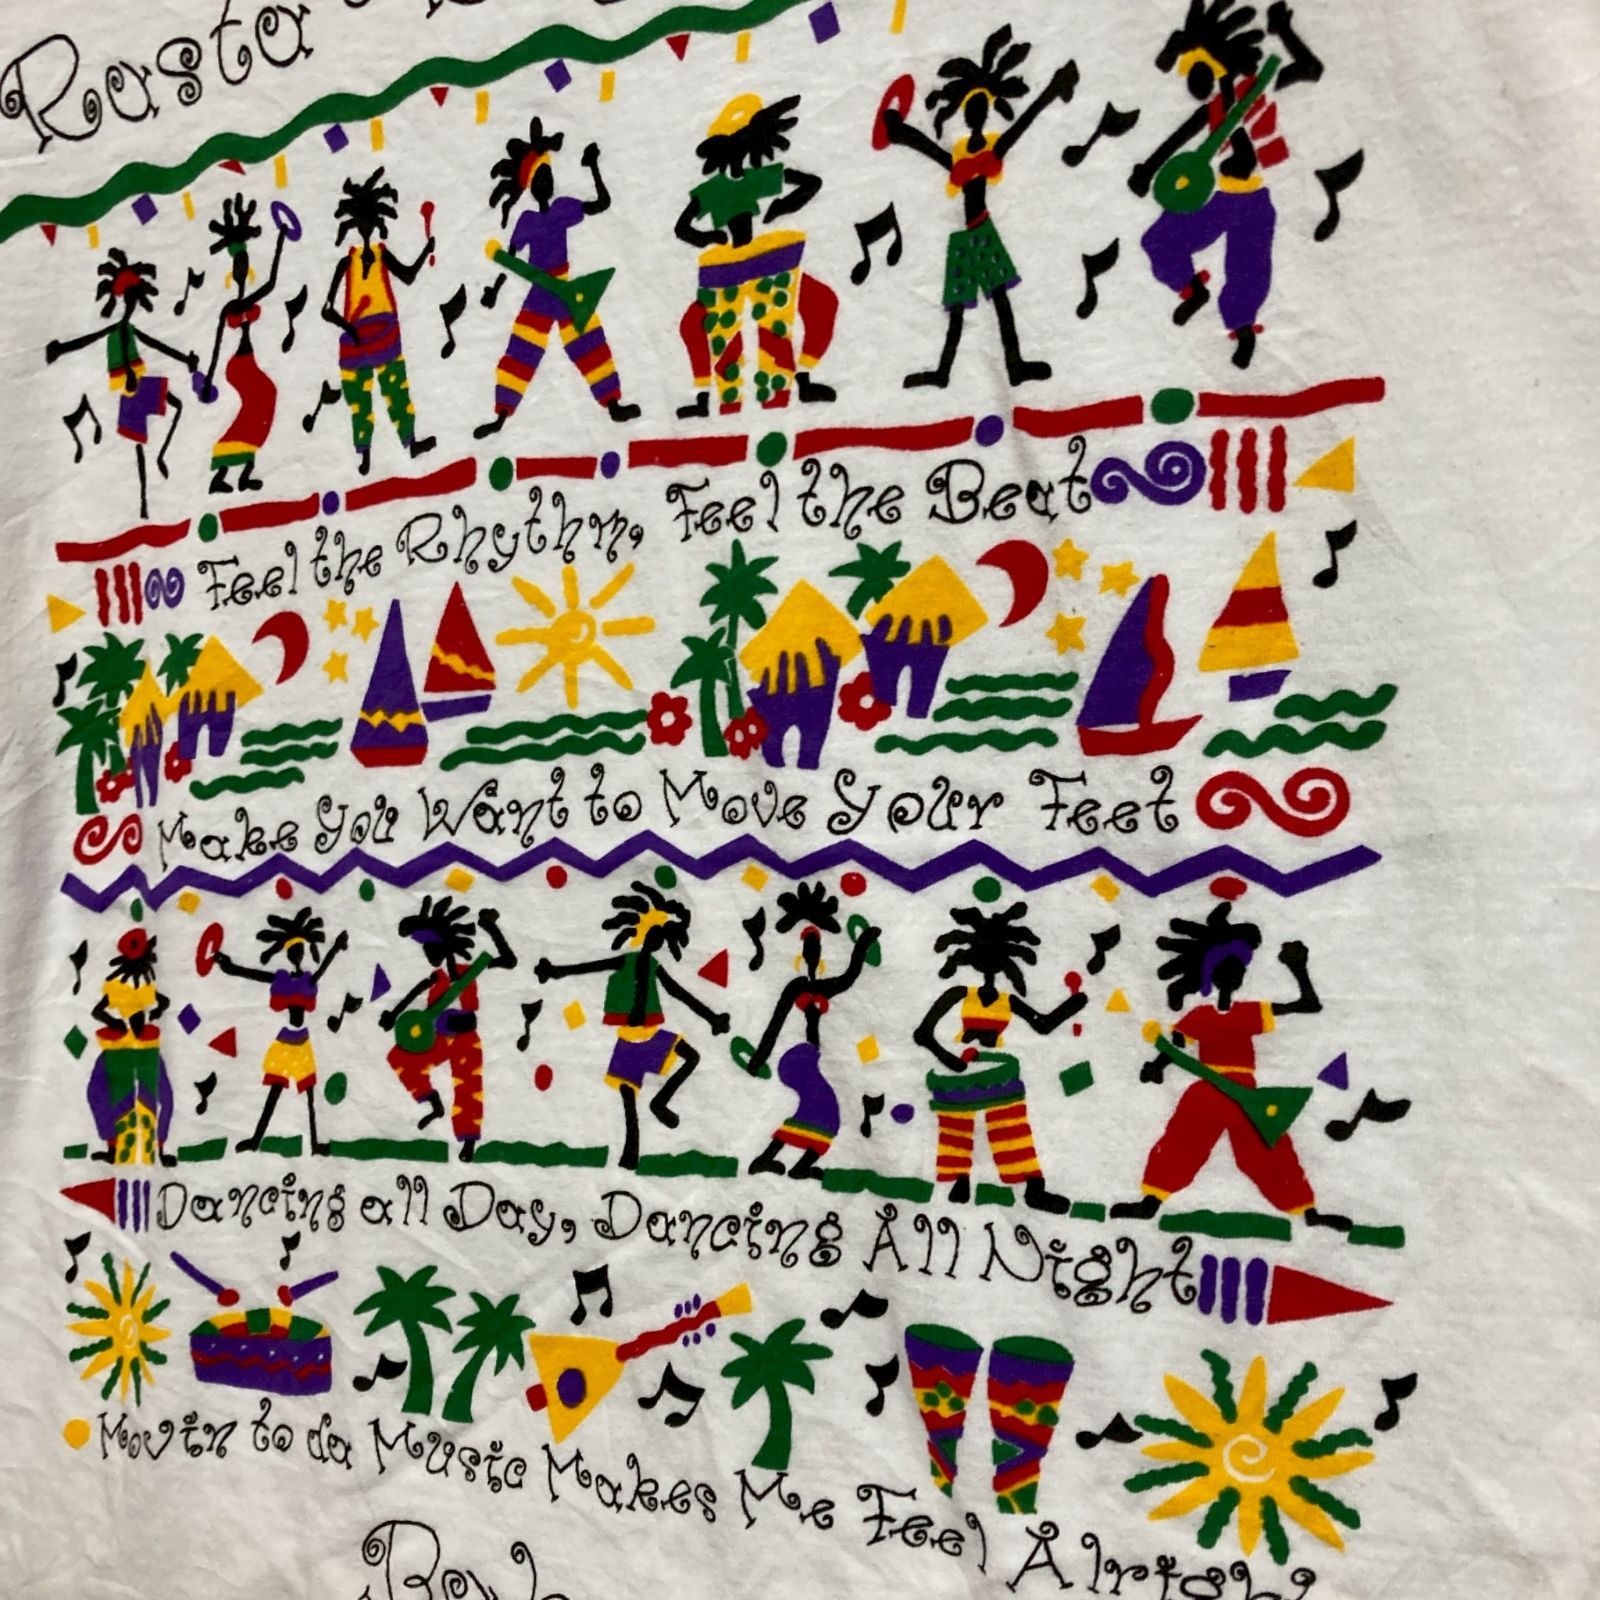 Rasta
Feel the Rhythm, Feel the Beat
Make You Want to Move Your Feet
Dancing all Day, Dancing All Night
Movin to da Music Makes Me Feel Alright